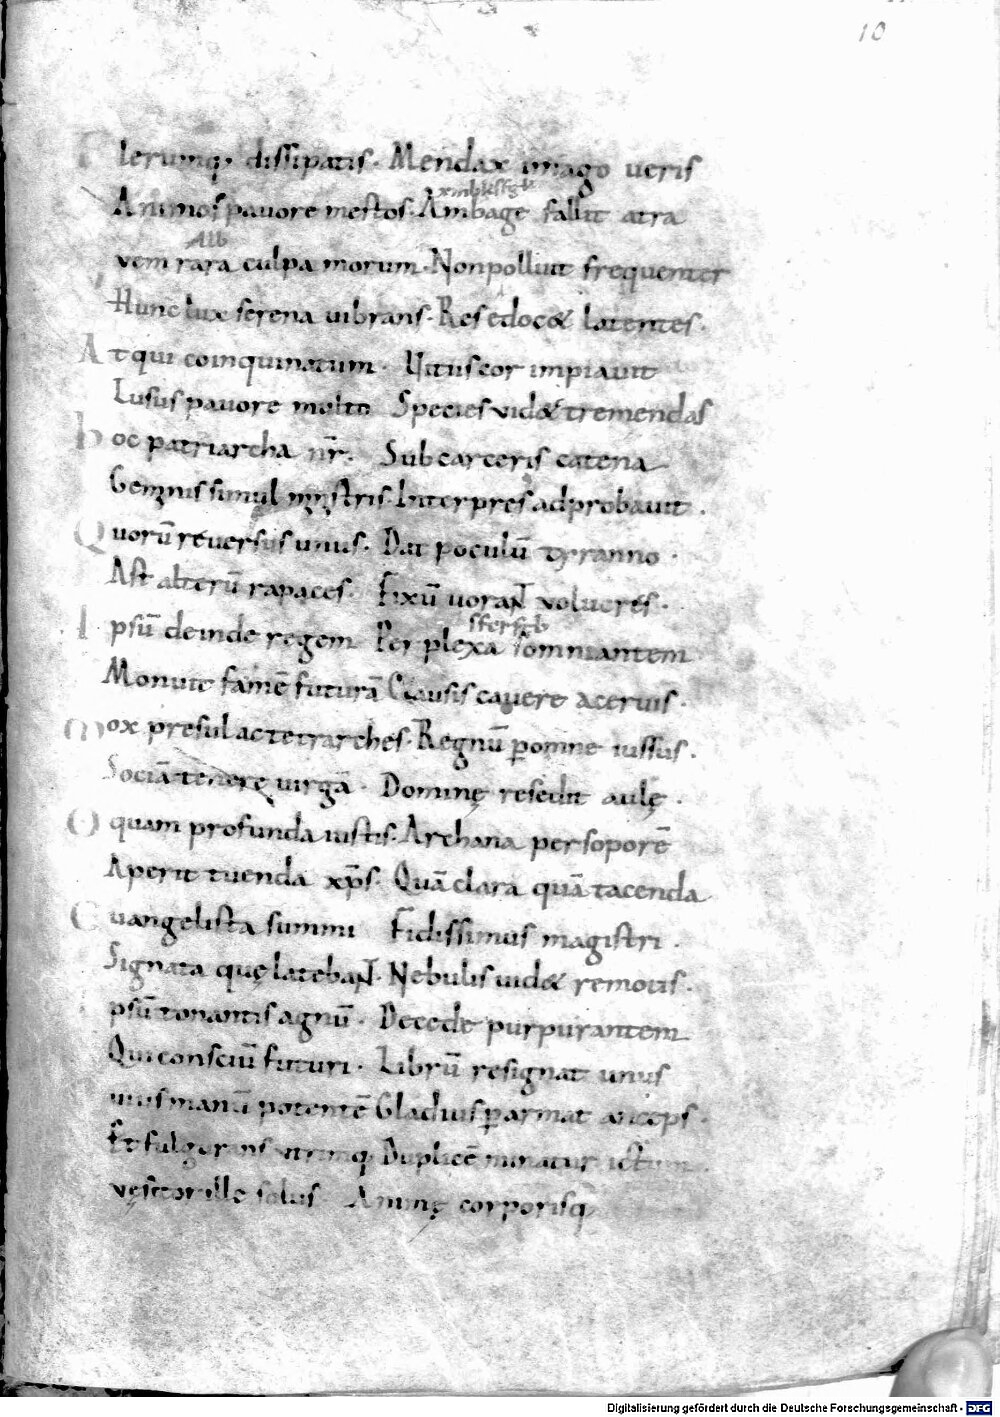 10
Plerumq; dissipatis. Mendax imago veris
Animos pauore mestos. Ambage fallit atra
vem rara culpa morum. Non polluit frequenter
Hunc lux serena uibrans. Res edoc& latentes.
At qui coinquinatum. Uitus cor impiauit
Lusus pauore multo Species uid& tremendas
hoc patriarcha nr̄. Sub carceris catena
Geminis simul ministris. Interpres adprobauit.
Quorū reuersus unus. Dat poculū tyranno.
Ast alterū rapaces. Fixū uorant volucres.
Ipsū deinde regem Perplexa somniantem
Monuit famē futurā Clausis cauere aceruis.
Mox presul ac tetrarches. Regnū p omne iussus.
Sociā tenere uirgā. Dominę resedit aulę.
O quam profunda iustis. Archana per soporē
Aperit tuenda xp̄s. Quā clara quā tacenda.
Euangelista summi Fidissimus magistri.
Signata quę lateban̄t. Nebulis uid& remotis.
psū tonantis agnū. Decede purpurantem
Qui consciū futuri. Librū resignat unus
uius manū potentē Gladius p armat anceps.
Et fulgorans utrimq; Duplicē minatur ictum.
vęsitor ille solus. Animę corporisq
Digitalisierung gefördert durch die Deutsche Forschungsgemeinschaft - DFG